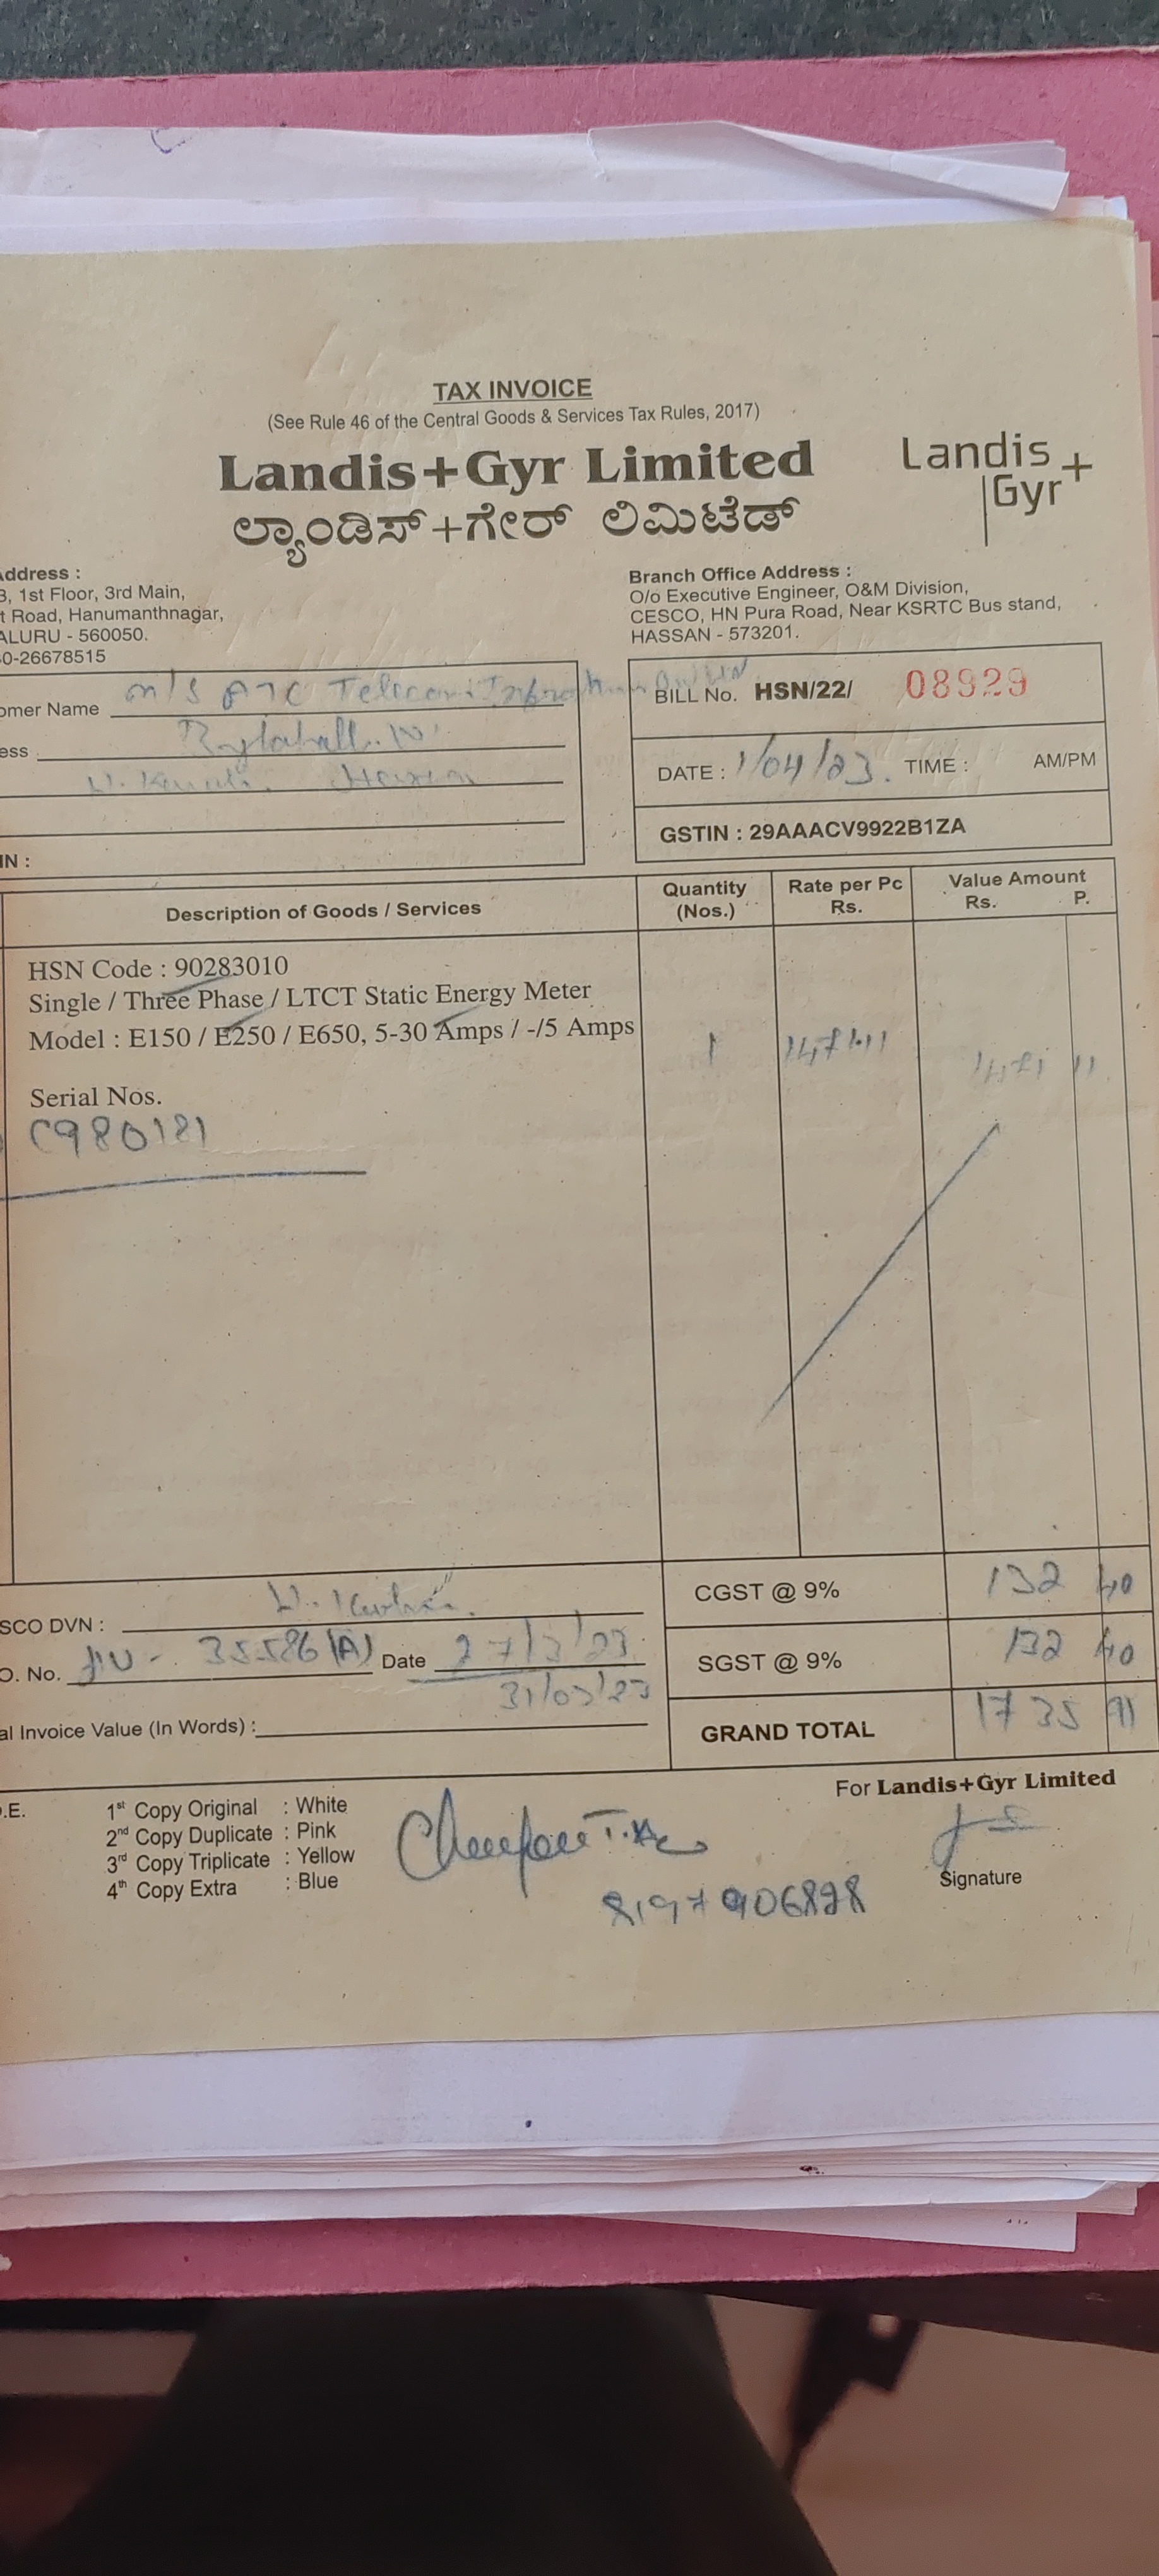 TAX INVOICE
(See Rule 46 of the Central Goods & Services Tax Rules, 2017)
Landis+Gyr Limited
ಲ್ಯಾಂಡಿಸ್+ಗೇರ್ ಲಿಮಿಟೆಡ್
Landis+
Gyr
Address :
3, 1st Floor, 3rd Main,
t Road, Hanumanthnagar,
ALURU - 560050.
0-26678515
Branch Office Address :
O/o Executive Engineer, O&M Division,
CESCO, HN Pura Road, Near KSRTC Bus stand,
HASSAN - 573201.
omer Name m/s ATC Telecom
ess
IN :
BILL No. HSN/22/ 08929
DATE : 1/04/23. TIME : AM/PM
GSTIN : 29AAACV9922B1ZA
Description of Goods / Services Quantity (Nos.) Rate per Pc Rs. Value Amount Rs. P.
HSN Code : 90283010
Single / Three Phase / LTCT Static Energy Meter
Model : E150 / E250 / E650, 5-30 Amps / -/5 Amps
1 1471.11 1471 11
Serial Nos.
C980181
CGST @ 9% 132 40
SCO DVN :
O. No. 35586 (A) Date 27/3/23
SGST @ 9% 132 40
31/03/23
al Invoice Value (In Words) :
GRAND TOTAL 1735 91
.E.
1st Copy Original : White
2nd Copy Duplicate : Pink
3rd Copy Triplicate : Yellow
4th Copy Extra : Blue
For Landis+Gyr Limited
8197906828
Signature